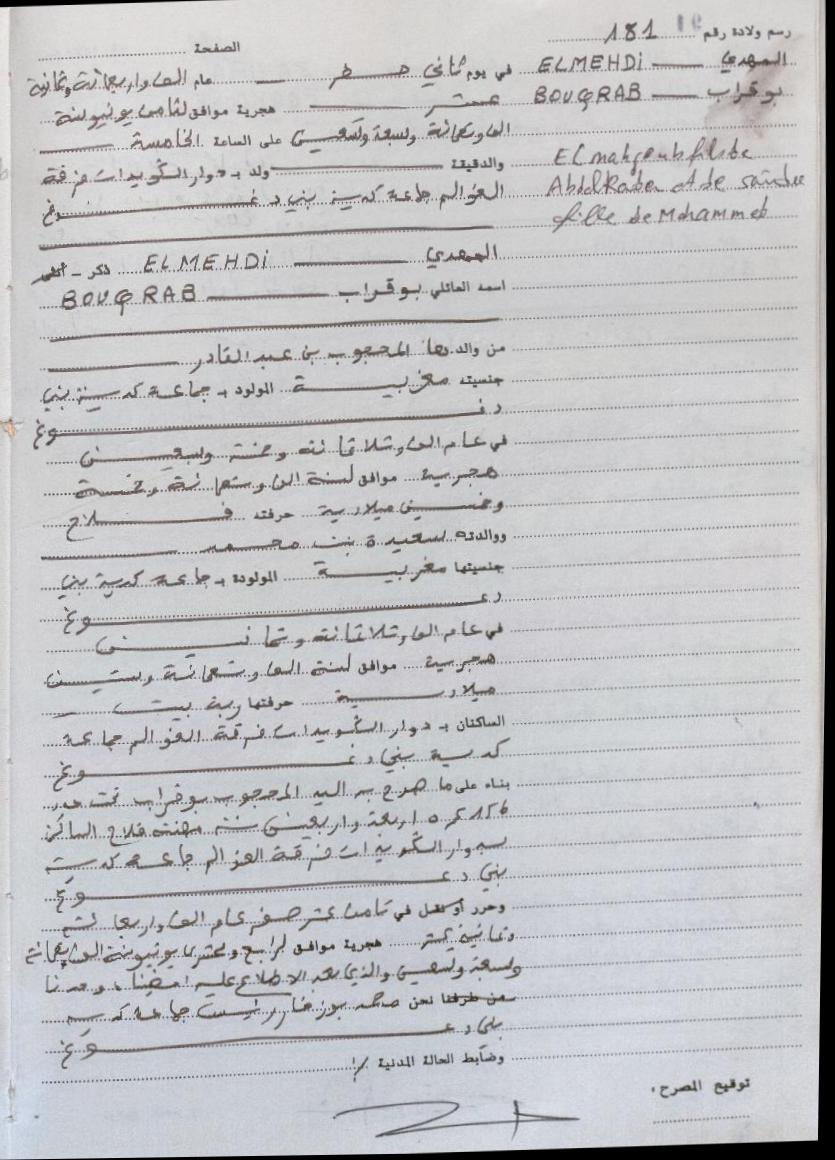 الصفحة
رسم ولادة رقم 181
المهدي ELMEHDi
بوقراب BOUQRAB
ELmahjoub fils de
Abdelkader et de saidia
fille de Mohammed
في يوم ثاني صفر عام الف واربعمائة وثمانية
عشر هجرية موافق لثامن يونيو سنة
الف وتسعمائة وسبعة وتسعين على الساعة الخامسة
والدقيقة ولد بـ دوار الكويدات فرقة
العوالم جماعة كدية بني دغوغ
المهدي ELMEHDi ذكر - أنثى
اسمه العائلي بوقراب BOUQRAB
من والدها المحجوب بن عبد القادر
جنسيته مغربية المولود بـ جماعة كدية بني
دغوغ
في عام الف وثلاثمائة وخمسة وسبعين
هجرية موافق لسنة الف وتسعمائة وخمسة
وخمسين ميلادية حرفته فلاح
ووالدته سعيدة بنت محمد
جنسيتها مغربية المولودة بـ جماعة كدية بني
دغوغ
في عام الف وثلاثمائة وثمانين
هجرية موافق لسنة الف وتسعمائة وستين
ميلادية حرفتها ربة بيت
الساكنان بـ دوار الكويدات فرقة العوالم جماعة
كدية بني دغوغ
بناء على ما صرح به السيد المحجوب بوقراب تحت عدد
اربعة واربعين سنة مهنته فلاح الساكن
بدوار الكويدات فرقة العوالم جماعة كدية
بني دغوغ
وحرر أو نقل في ثامن عشر صفر عام الف واربعمائة
وثمانية عشر هجرية موافق لرابع وعشرين يونيو سنة الف وتسعمائة
وسبعة وتسعين والذي بعد الاطلاع عليه امضيناه وحدنا
من طرفنا نحن محمد رئيس جماعة كدية
بني دغوغ
وضابط الحالة المدنية
توقيع المصرح.